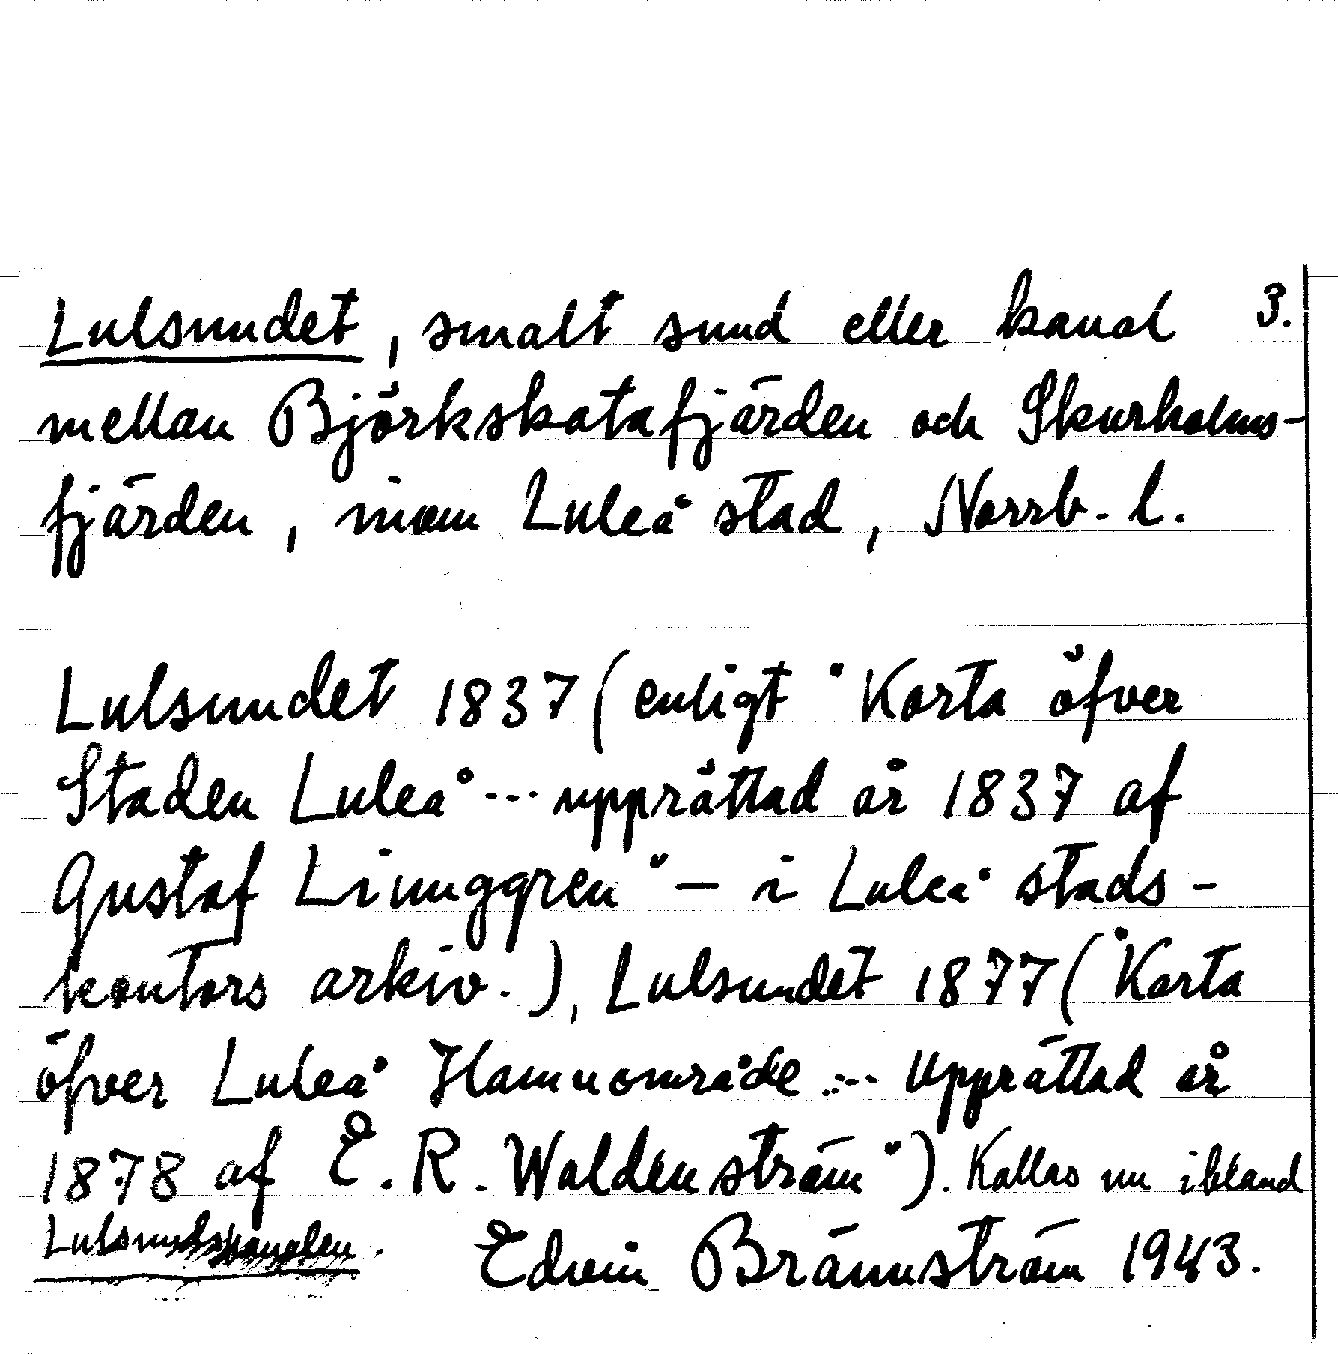 Lulsundet, smalt sund eller kanal 3.
mellan Björkskatafjärden och Skurholms-
fjärden, inom Luleå stad, Norrb. l.
Lulsundet 1837 (enligt "Karta öfver
Staden Luleå --- upprättad år 1837 af
Gustaf Linnggren" – i Luleå stads-
kontors arkiv.), Lulsundet 1877 ("Karta
öfver Luleå Hamnområde --- Upprättad år
1878 af E. R. Waldenström"). Kallas nu ibland
Lulsundskanalen.
Edvin Brännström 1943.